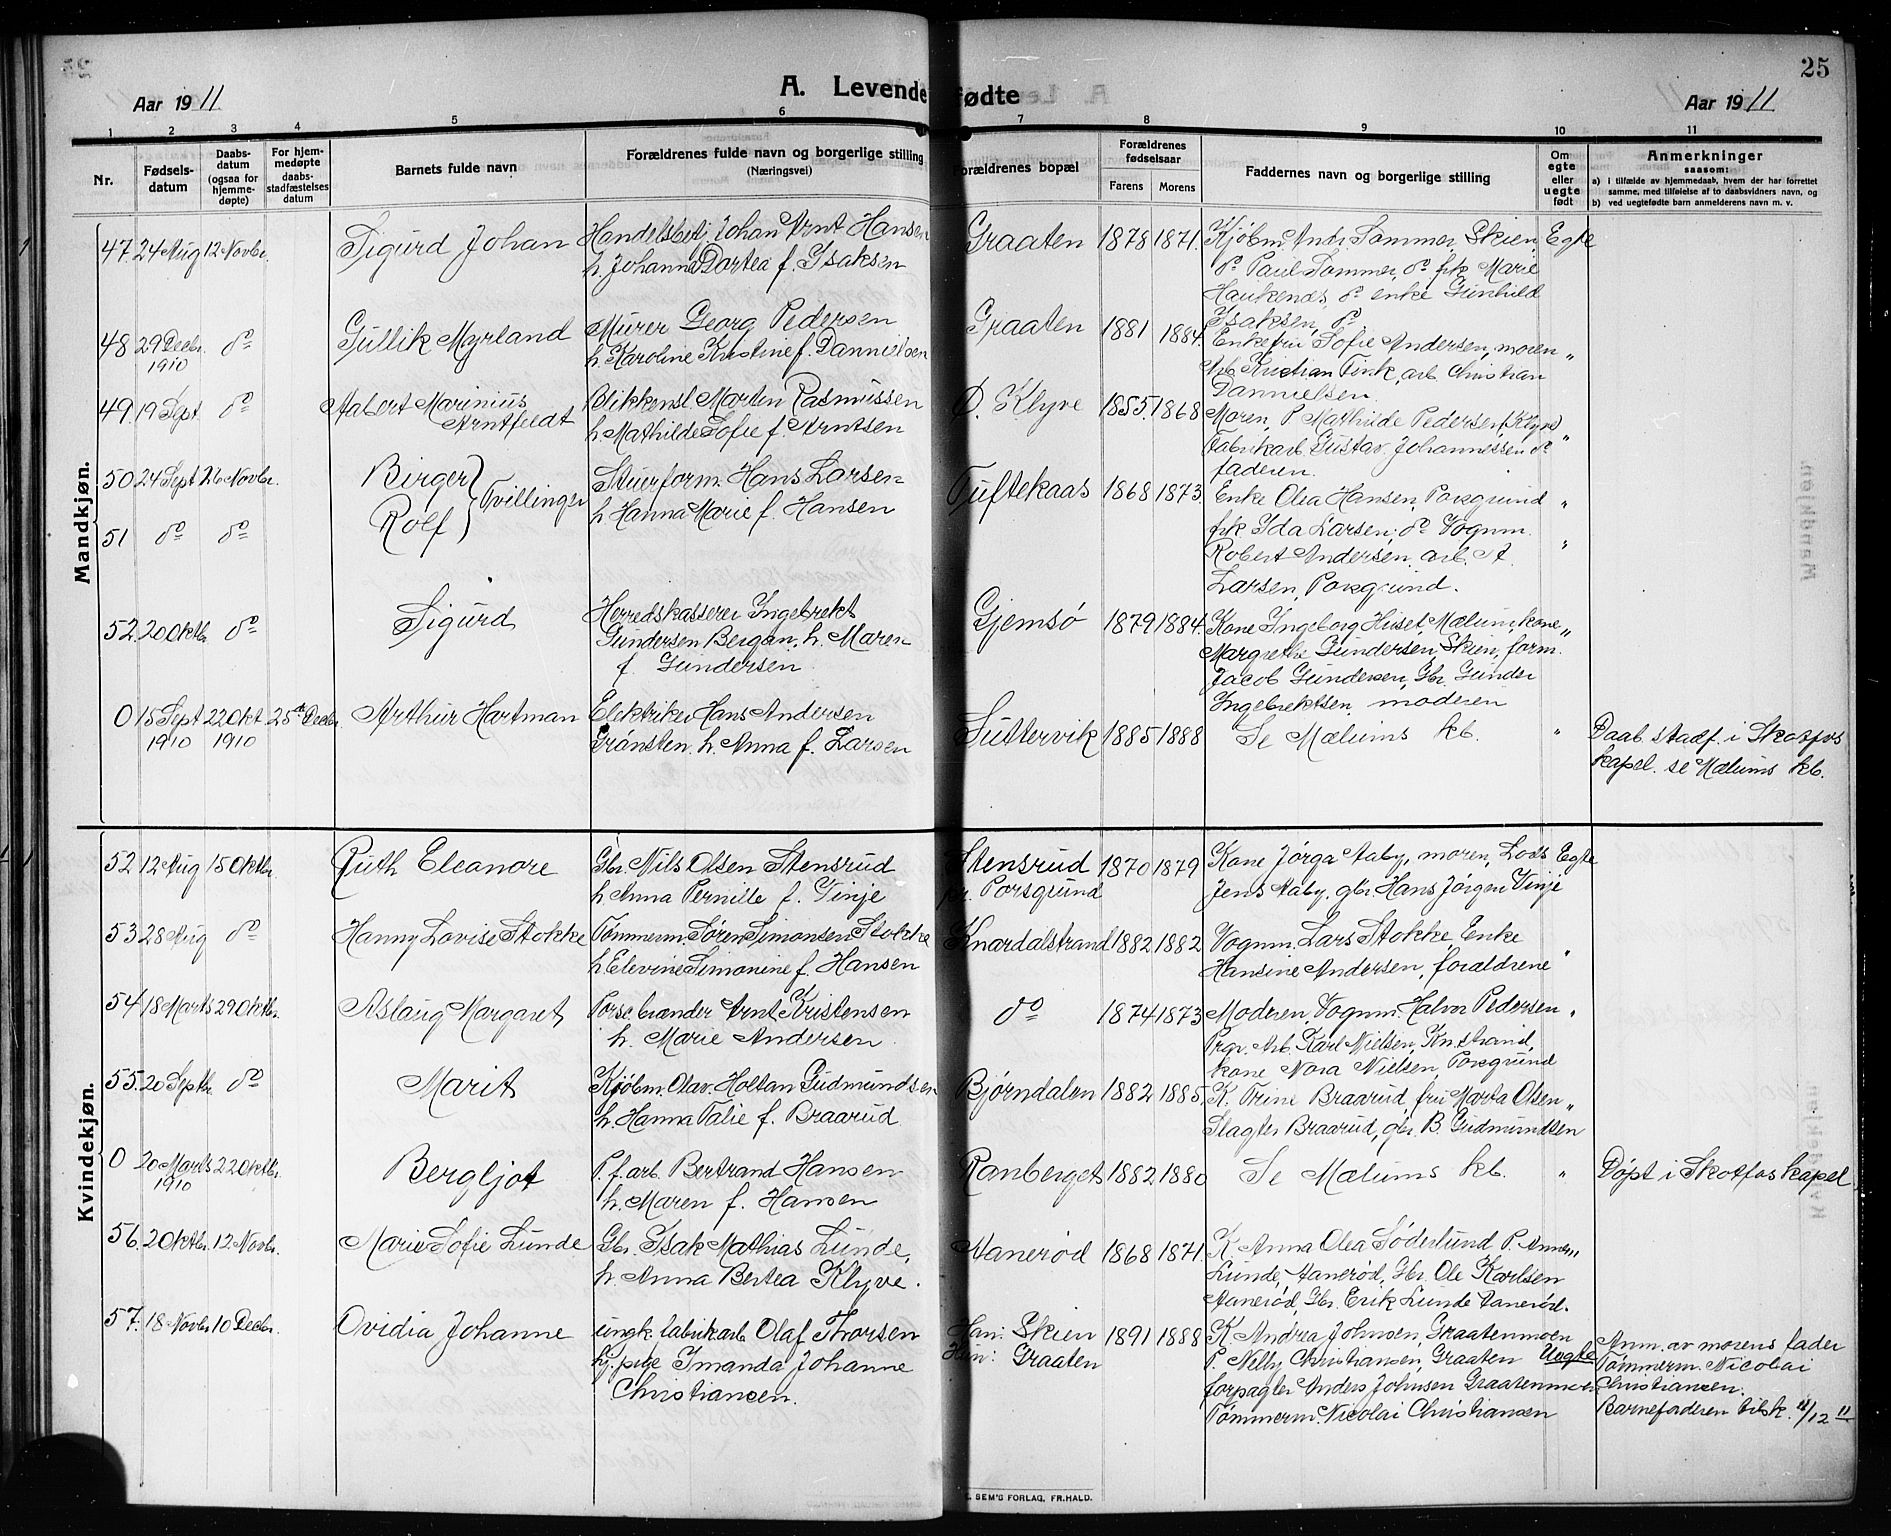 25
A. Levende fødte
Aar 1911
Aar 1911
1 2 3 4 5 6 7 8 9 10 11
Nr.
Fødselsdatum
Daabsdatum (ogsaa for hjemmedøpte)
For hjemmedøpte daabsstadfæstelses datum
Barnets fulde navn
Forældrenes fulde navn og borgerlige stilling
(Næringsvei)
Forældrenes bopæl
Forældrenes fødselsaar
Farens Morens
Faddernes navn og borgerlige stilling
Om egte eller uegte født
Anmerkninger
saasom:
a) i tilfælde av hjemmedaab, hvem der har forrettet
samme, med tilføielse af to daabsvidners navn, og
b) ved uegtefødte barn anmelderens navn m. v.
Mandkjøn.
47 24 Aug 12 Novbr. Sigurd Johan
Handelsbetj. Johan Arnt Hansen
h. Johanna Dortea f. Isaksen
Graaten 1878 1871.
Kjøbm. Andr. Sommer, Skien, Egte
do Paul Sommer, do frk Marie
Haukenæs do enke Gunhild
Isaksen, do
48 29 Decbr. 1910 do Gullik Myrland
Murer Georg Pedersen
h. Karoline Kristine f. Dannielsen
Graaten 1881 1884.
Enkefru Sofie Andersen, moren "
Arb. Kristian Fink, arb. Christian
Dannielsen.
49. 19 Sept. do Aabert Marinius
Arntfeldt
Blikkensl. Martin Rasmussen
h. Mathilde Sofie f. Arntsen
Ø. Klyve 1855. 1868
Moren, P. Mathilde Pedersen, (Klyve) "
Fabrikarb. Gustav Johannessen do
faderen.
50 24 Sept 26 Novbr. Birger
51 do do Rolf
Tvillinger
Stuerform. Hans Larsen
h Hanna Marie f. Hansen
Tuftekaas 1868 1873.
Enke Olea Hansen, Porsgrund "
frk Ida Larsen, do Vognm.
Robert Andersen, arb. A. "
Larsen, Porsgrund.
52. 20 Oktbr. do Sigurd
Herredskasserer Ingebrekt
Gundersen Bergan, h. Maren
f. Gundersen
Gjemsø 1879 1884.
Kone Ingeborg Huset, Mælum, kone "
Margrethe Gundersen, Skien, form.
Jacob Gundersen, Gbr. Gunder
Ingebrektsen, moderen
0 15 Sept 1910 22 Okt. 1910 25de Decbr. Arthur Hartman
Elektriker Hans Andersen
Grønsten h. Anna f. Larsen
Suttervik 1885 1888
Se Mælums kb. "
Daab. stadf. i Skotfos
kapel. se Mælums kb.
Kvindekjøn.
52 12 Aug 15 Oktbr. Ruth Eleanore
Gbr. Nils Olsen Stensrud
h Anna Pernille f. Vinje
Stensrud
pr. Porsgrund
1870 1879
Kone Jørga Aaby, moren, Lods Egte
Jens Aaby, gbr. Hans Jørgen Vinje
53. 28 Aug do Hanny Lovise Stokke
Tømmerm. Søren Simonsen Stokke
h. Elevine Simonine f. Hansen
Knardalstrand 1882 1882
Vognm. Lars Stokke, Enke
Hansine Andersen, forældrene "
54 18 Marts 29 Oktbr. Aslaug Margaret
Arnt Kristensen
h. Marie Andersen
do 1874 1873
Moderen, Vognm. Halvor Pedersen "
Prgr. Arb. Karl Nielsen, Kn.strand,
kone Nora Nielsen, Porsgrund
55. 20 Septbr. do Marit
Kjøbm. Olav Holtan Gudmundsen
h. Hanna Talie f. Braarud
Bjørndalen 1882 1885.
K. Trine Braarud, fru Marta Olsen "
Slagter Braarud, gbr. B. Gudmundsen
0 20 Marts 1910 22 Oktbr. Bergljot
P. f. arb. Bertrand Hansen
h. Maren f. Hansen
Ranberget 1882 1880
Se Mælums kb. "
Døpt i Skotfos kapel
56. 2 Oktbr. 12 Novbr. Marie Sofie Lunde
Gbr. Isak Mathias Lunde,
h. Anna Bertea Klyve.
Aanerød 1868 1871.
K. Anna Olea Søderlund, P. "
Lunde, Aanerød, Gbr. Ole Karlsen
Aanerød, Gbr. Erik Lunde Aanerød.
57. 18 Novbr 10 Decbr. Ovidia Johanne
ungk. fabrikarb Olaf Thorsen
pige Imanda Johanne
Christiansen.
Han: Skien
Hun: Graaten
1891 1888
K Andrea Johnsen, Graatenmoen
P. Nelly Christiansen, Graaten Uegte
forpagter Anders Johnsen Graatenmoen
Tømmerm. Nicolai Christiansen
Anm. av morens fader
Tømmerm. Nicolai
Christiansen.
Barnefaderen tilsk. 11/12 11
SEM'S FORLAG, FR.HALD.